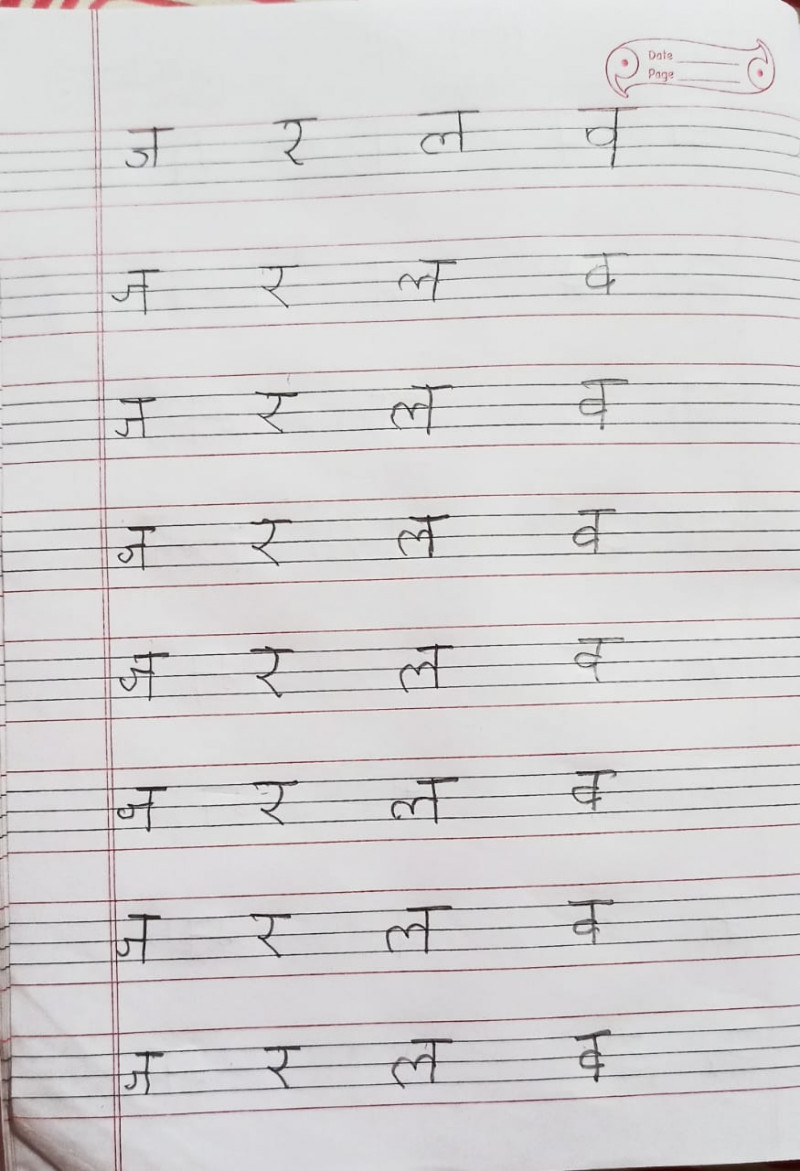 Date
Page
ज र ल व
ज र ल व
ज र ल व
ज र ल व
ज र ल व
ज र ल व
ज र ल व
ज र ल व